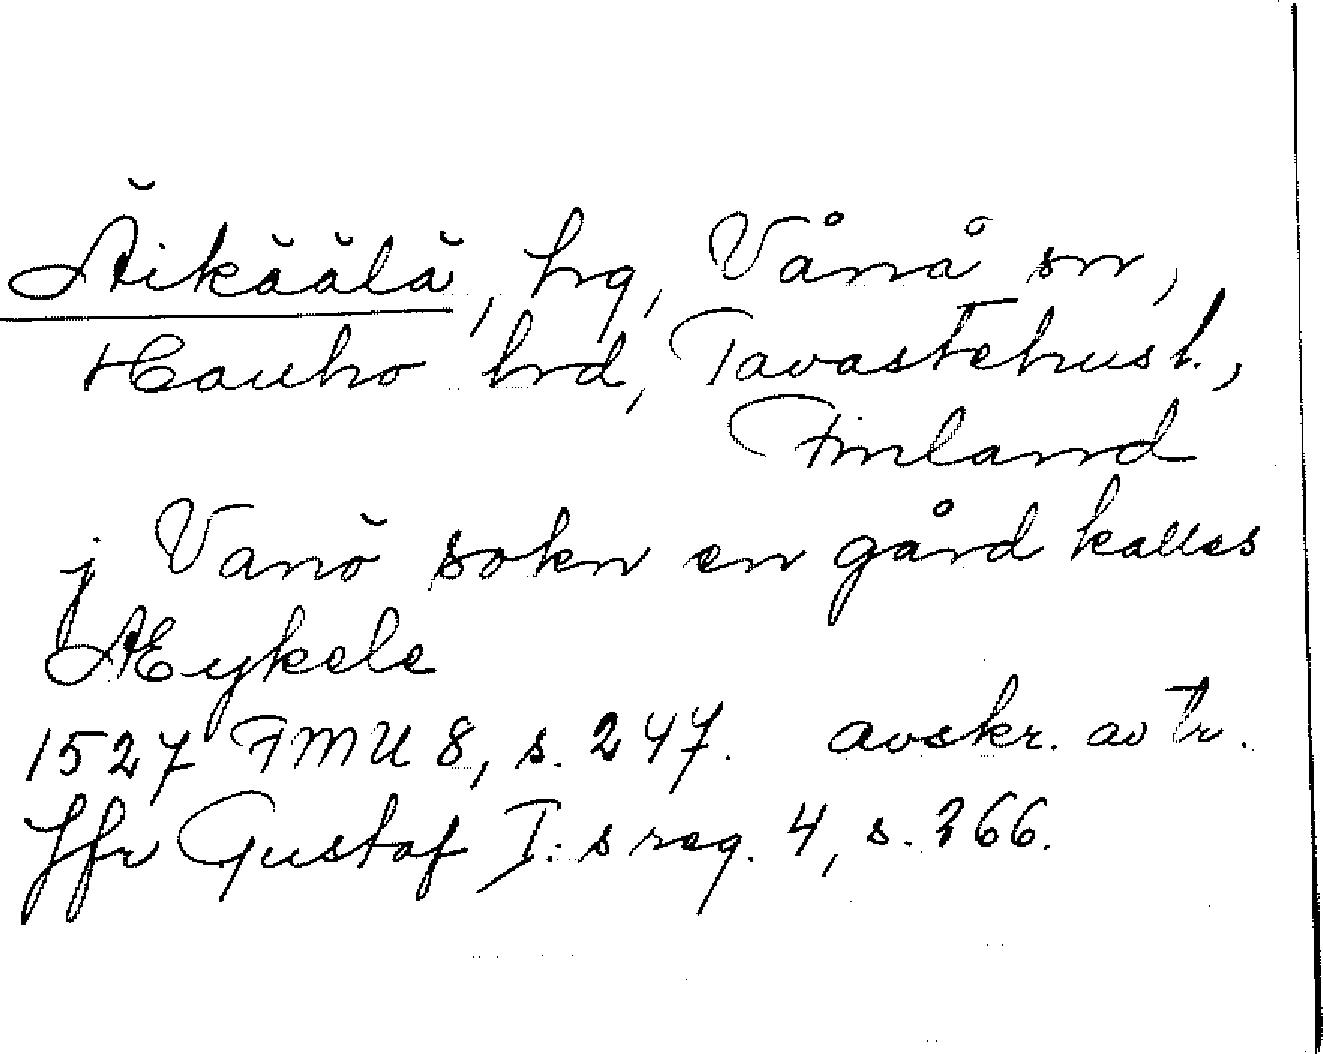 Äikäälä, hrg, Vånå sn,
Hauho hrd, Tavastehus l.,
Finland
j Vanö sokn en gård kalles
Æykele
1527 FMU 8, s. 247. avskr. av tr.
Jfr Gustaf I:s reg. 4, s. 366.